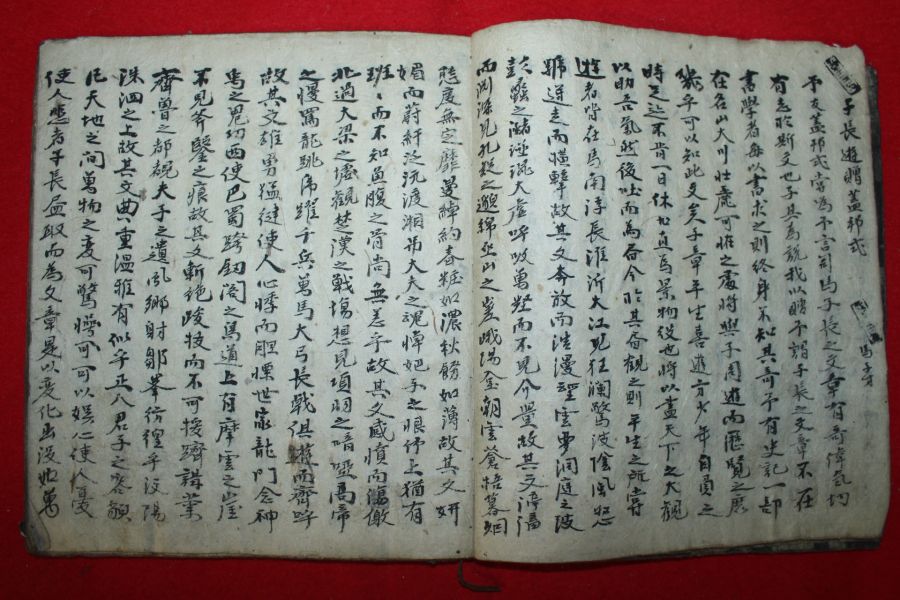 子長遊贈盖邦式
馬子才
予友盖邦式嘗爲予言司馬子長之文章有奇偉氣切
有志於斯文也子其爲說我以贈予謂子長之文章不在
書學者每以書求之則終身不知其奇予有史記一部
在名山大川壯麗可恠之處將與子周遊而歷覽之庶
幾乎可以知此文矣子長平生喜遊方少年自負之
時足迹不肯一日休非直爲景物役也將以盡天下之大觀
以助吾氣然後吐而爲書今於其書觀之則平生之所嘗
遊者皆在焉南浮長淮泝大江見狂瀾驚波陰風怒
號逆走而橫擊故其文奔放而浩漫望雲夢洞庭之陂
彭蠡之瀦涵混太虛呼吸萬壑而不見介量故其文渟滀
而淵深見九疑之邈綿巫山之嵳峩陽臺朝雲蒼梧暮烟
態度無定靡蔓綽約春粧如濃秋餙如薄故其文姸
媚而蔚紆泛沅渡湘吊大夫之魂悼妃子之恨竹上猶有
班〻而不知魚腹之骨尙無恙乎故其文感憤而傷激
北過大梁之墟觀楚漢之戰場想見項羽之喑噁高帝
之慢罵龍跳虎躍千兵萬馬大弓長戟俱遊而齊呼
故其文雄勇猛健使人心悸而膽慄世家龍門念神
禹之鬼功西使巴蜀跨釼閣之鳥道上有摩雲之崖
不見斧鑿之痕故其文斬絶峻拔而不可援躋講業
齊魯之都覩夫子之遺風鄕射鄒嶧彷徨乎汶陽
洙泗之上故其文典重溫雅有似乎正人君子之容貌
凡天地之間萬物之變可驚愕可可以娛心使人憂
使人悲者子長盡取而爲文章是以變化出沒如萬